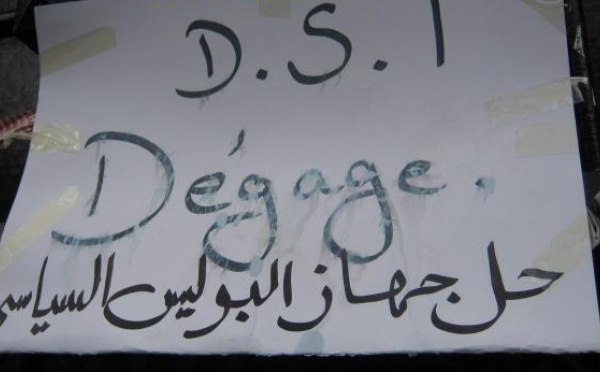 D.S.I
Dégage.
حل جهاز البوليس السياسي